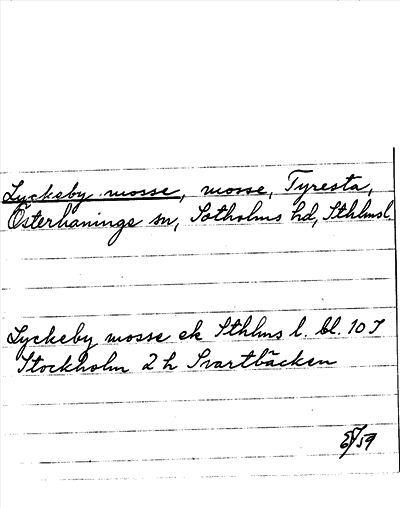 Lyckeby mosse, mosse, Tyresta,
Österhaninge sn, Sotholms hd, Sthlmsl.
Lyckeby mosse ek Sthlms l. bl. 10 J
Stockholm 2 h Svartbäcken